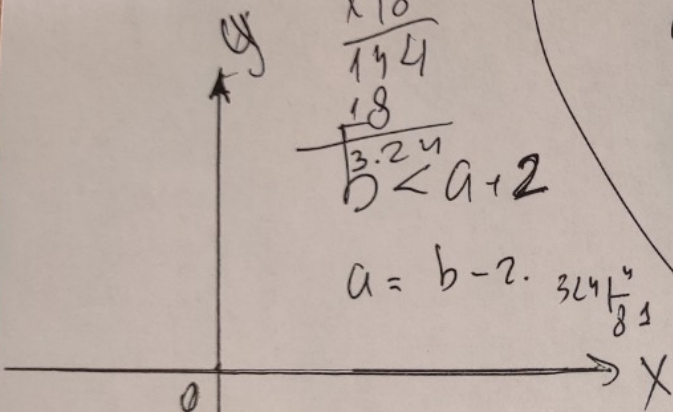 y
144
18
324
b < a + 2
a = b - 2.
324 4
81
0
X